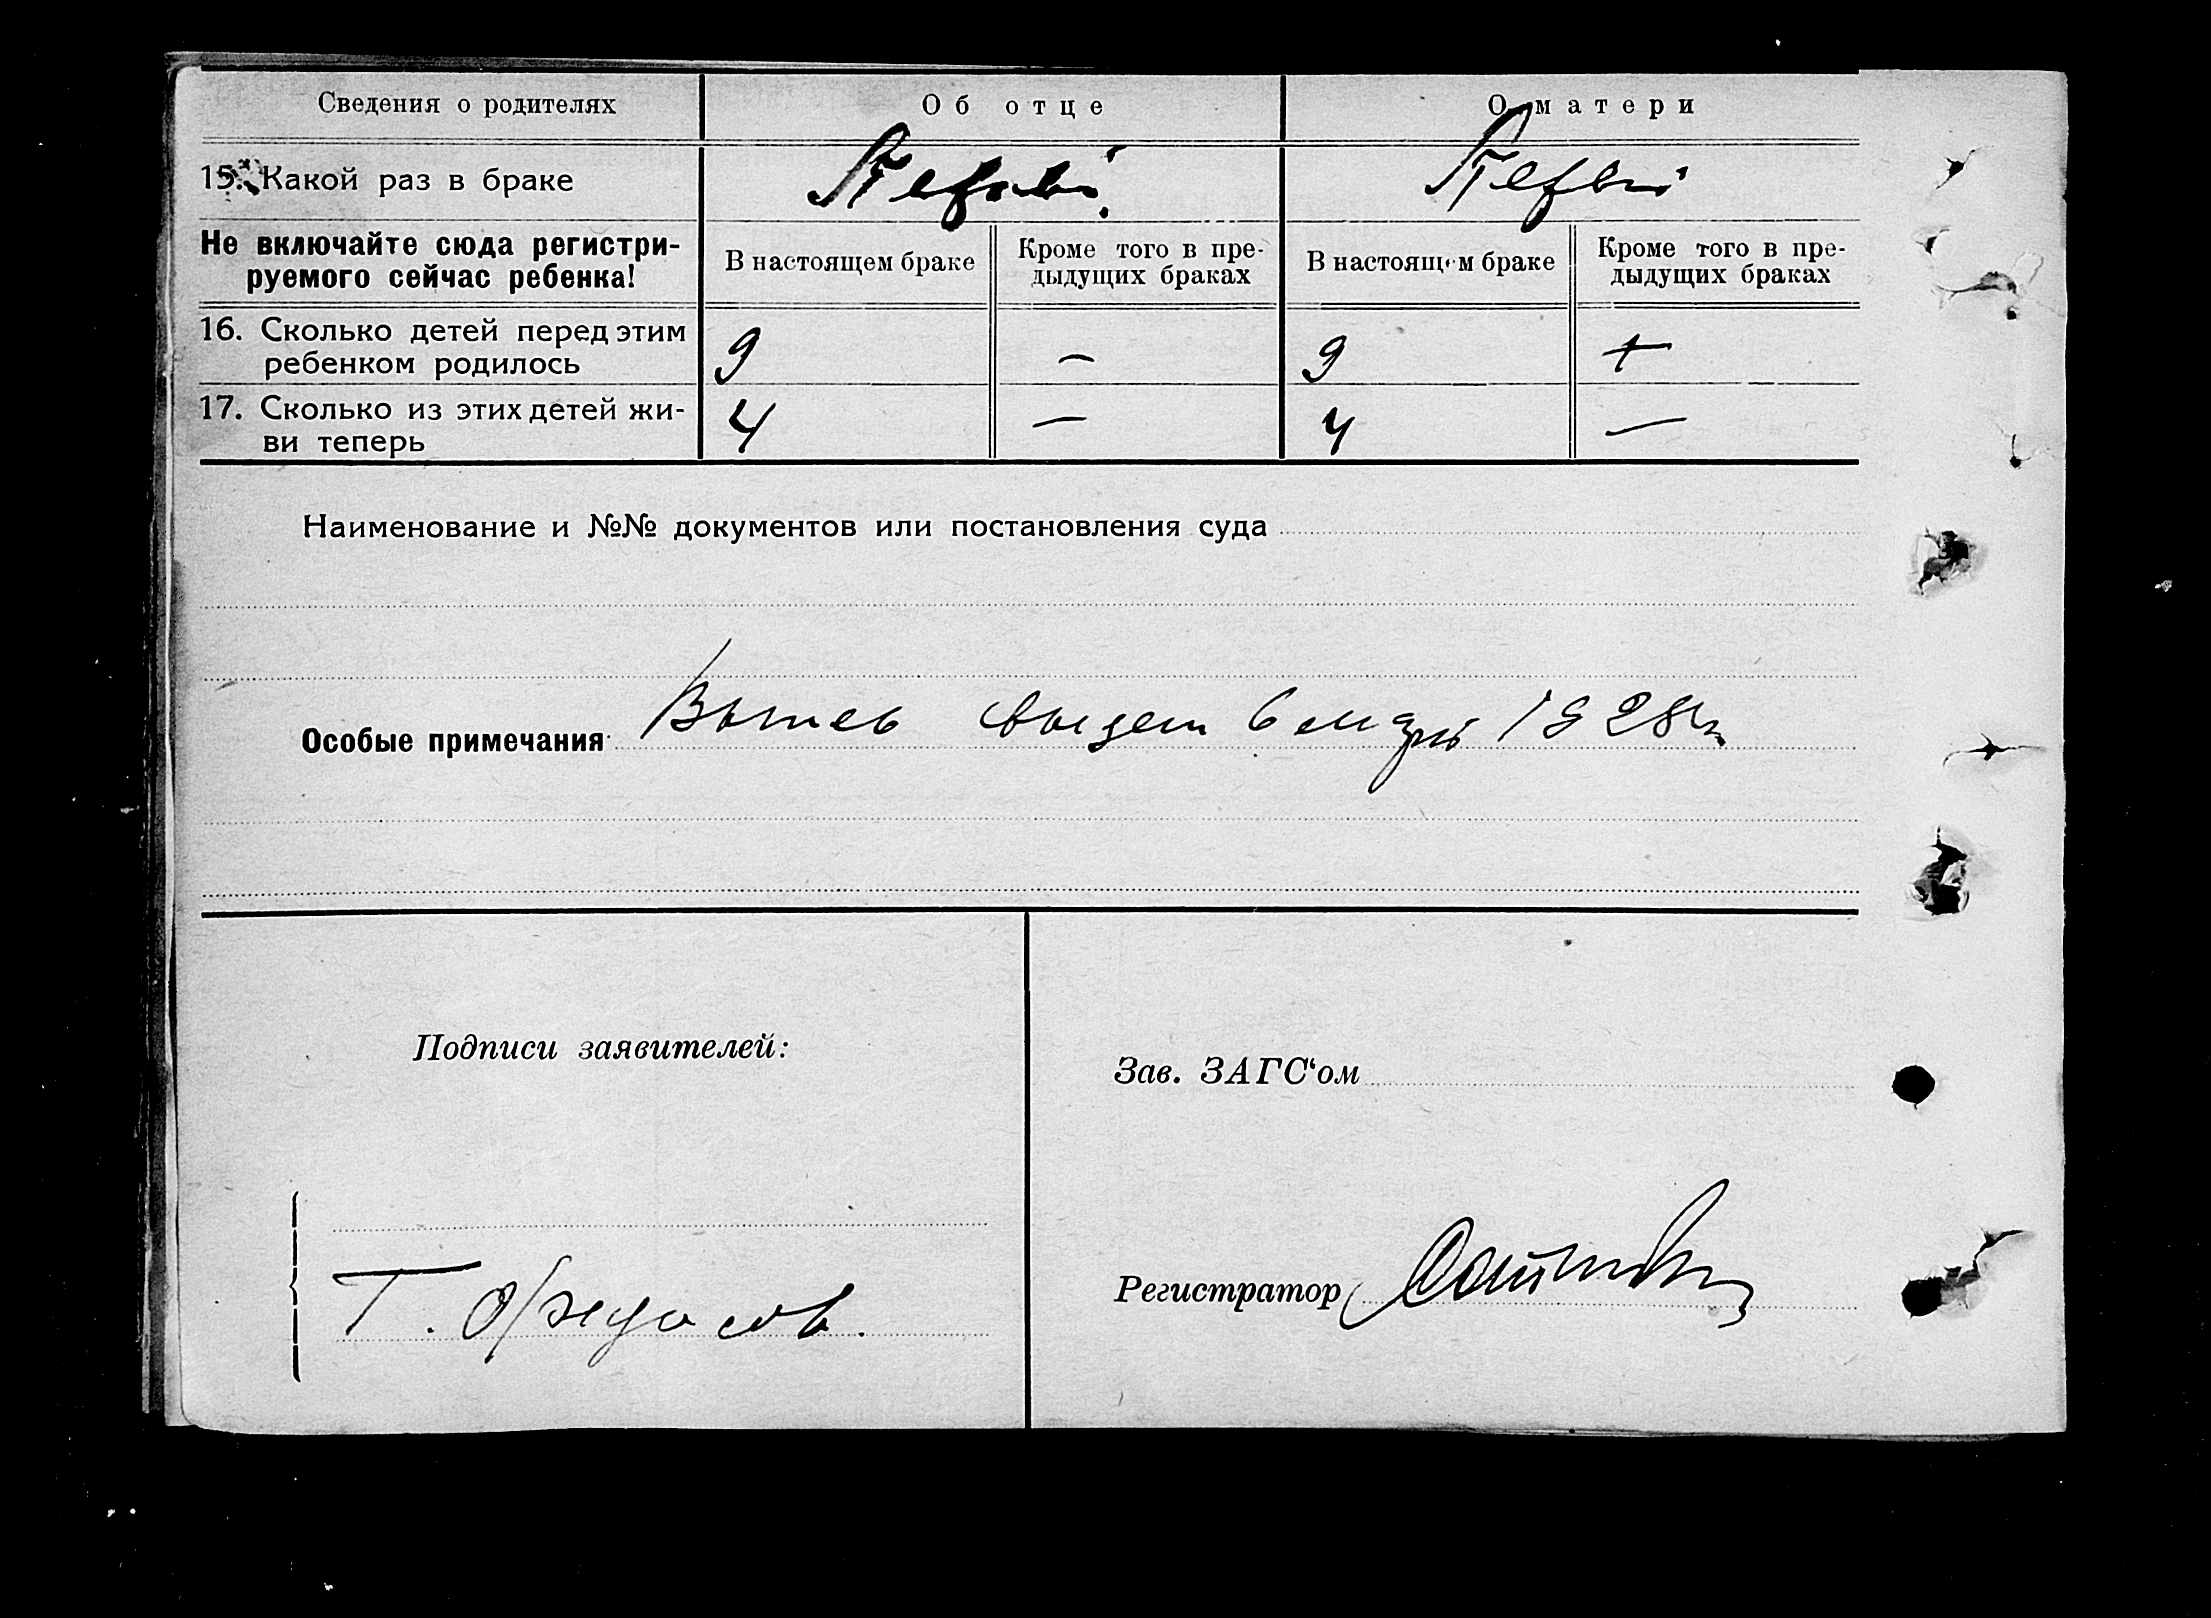 Сведения о родителях
Об отце
О матери
15. Какой раз в браке
Первый
Первый
Не включайте сюда регистри-
руемого сейчас ребенка!
В настоящем браке
Кроме того в пре-
дыдущих браках
В настоящем браке
Кроме того в пре-
дыдущих браках
16. Сколько детей перед этим
ребенком родилось
9
–
9
+
17. Сколько из этих детей жи-
ви теперь
4
–
4
–
Наименование и №№ документов или постановления суда
Особые примечания
6 1928 г
Подписи заявителей:
Зав. ЗАГС‘ом
Регистратор
Т.